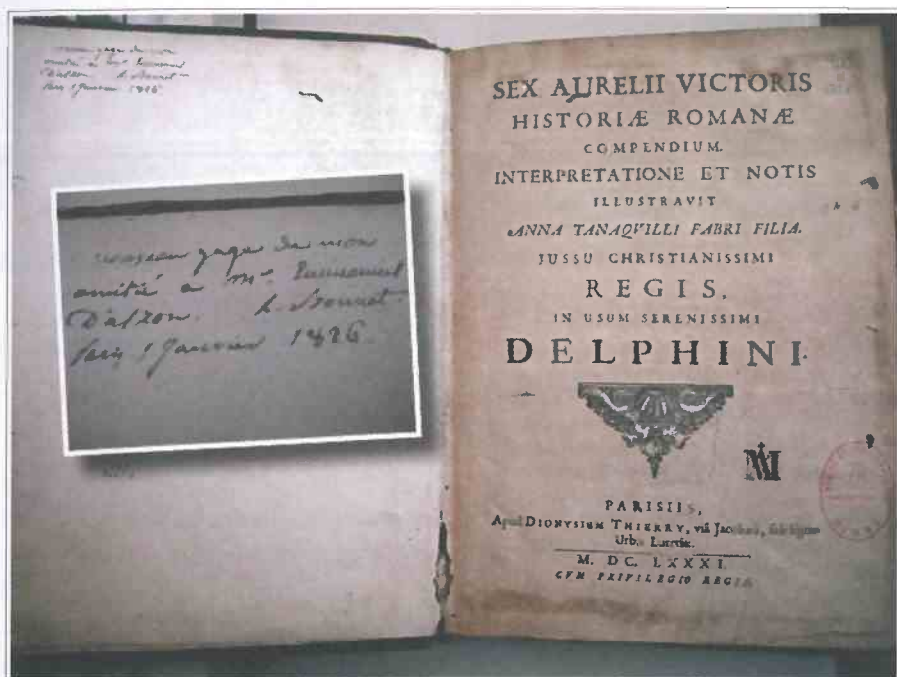 gage de mon
amitié à Mr
D'alzon.
Paris 1 Janvier 1826
gage de mon
amitié à Mr
D'alzon.
Paris 1 Janvier 1826
SEX AURELII VICTORIS
HISTORIÆ ROMANÆ
COMPENDIUM.
INTERPRETATIONE ET NOTIS
ILLUSTRAVIT
ANNA TANAQVILLI FABRI FILIA.
JUSSU CHRISTIANISSIMI
REGIS,
IN USUM SERENISSIMI
DELPHINI.
PARISIIS,
Apud DIONYSIUM THIERRY, viâ Jacobæa, sub signo
Urbis Lutetiæ.
M. DC. LXXXI.
CVM PRIVILEGIO REGIS